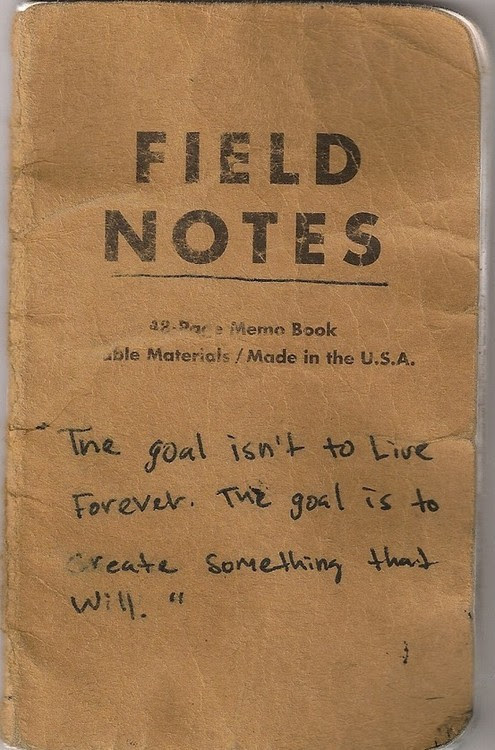 FIELD
NOTES
48-Page Memo Book
Materials / Made in the U.S.A.
"The goal isn't to Live
Forever. The goal is to
create something that
Will."